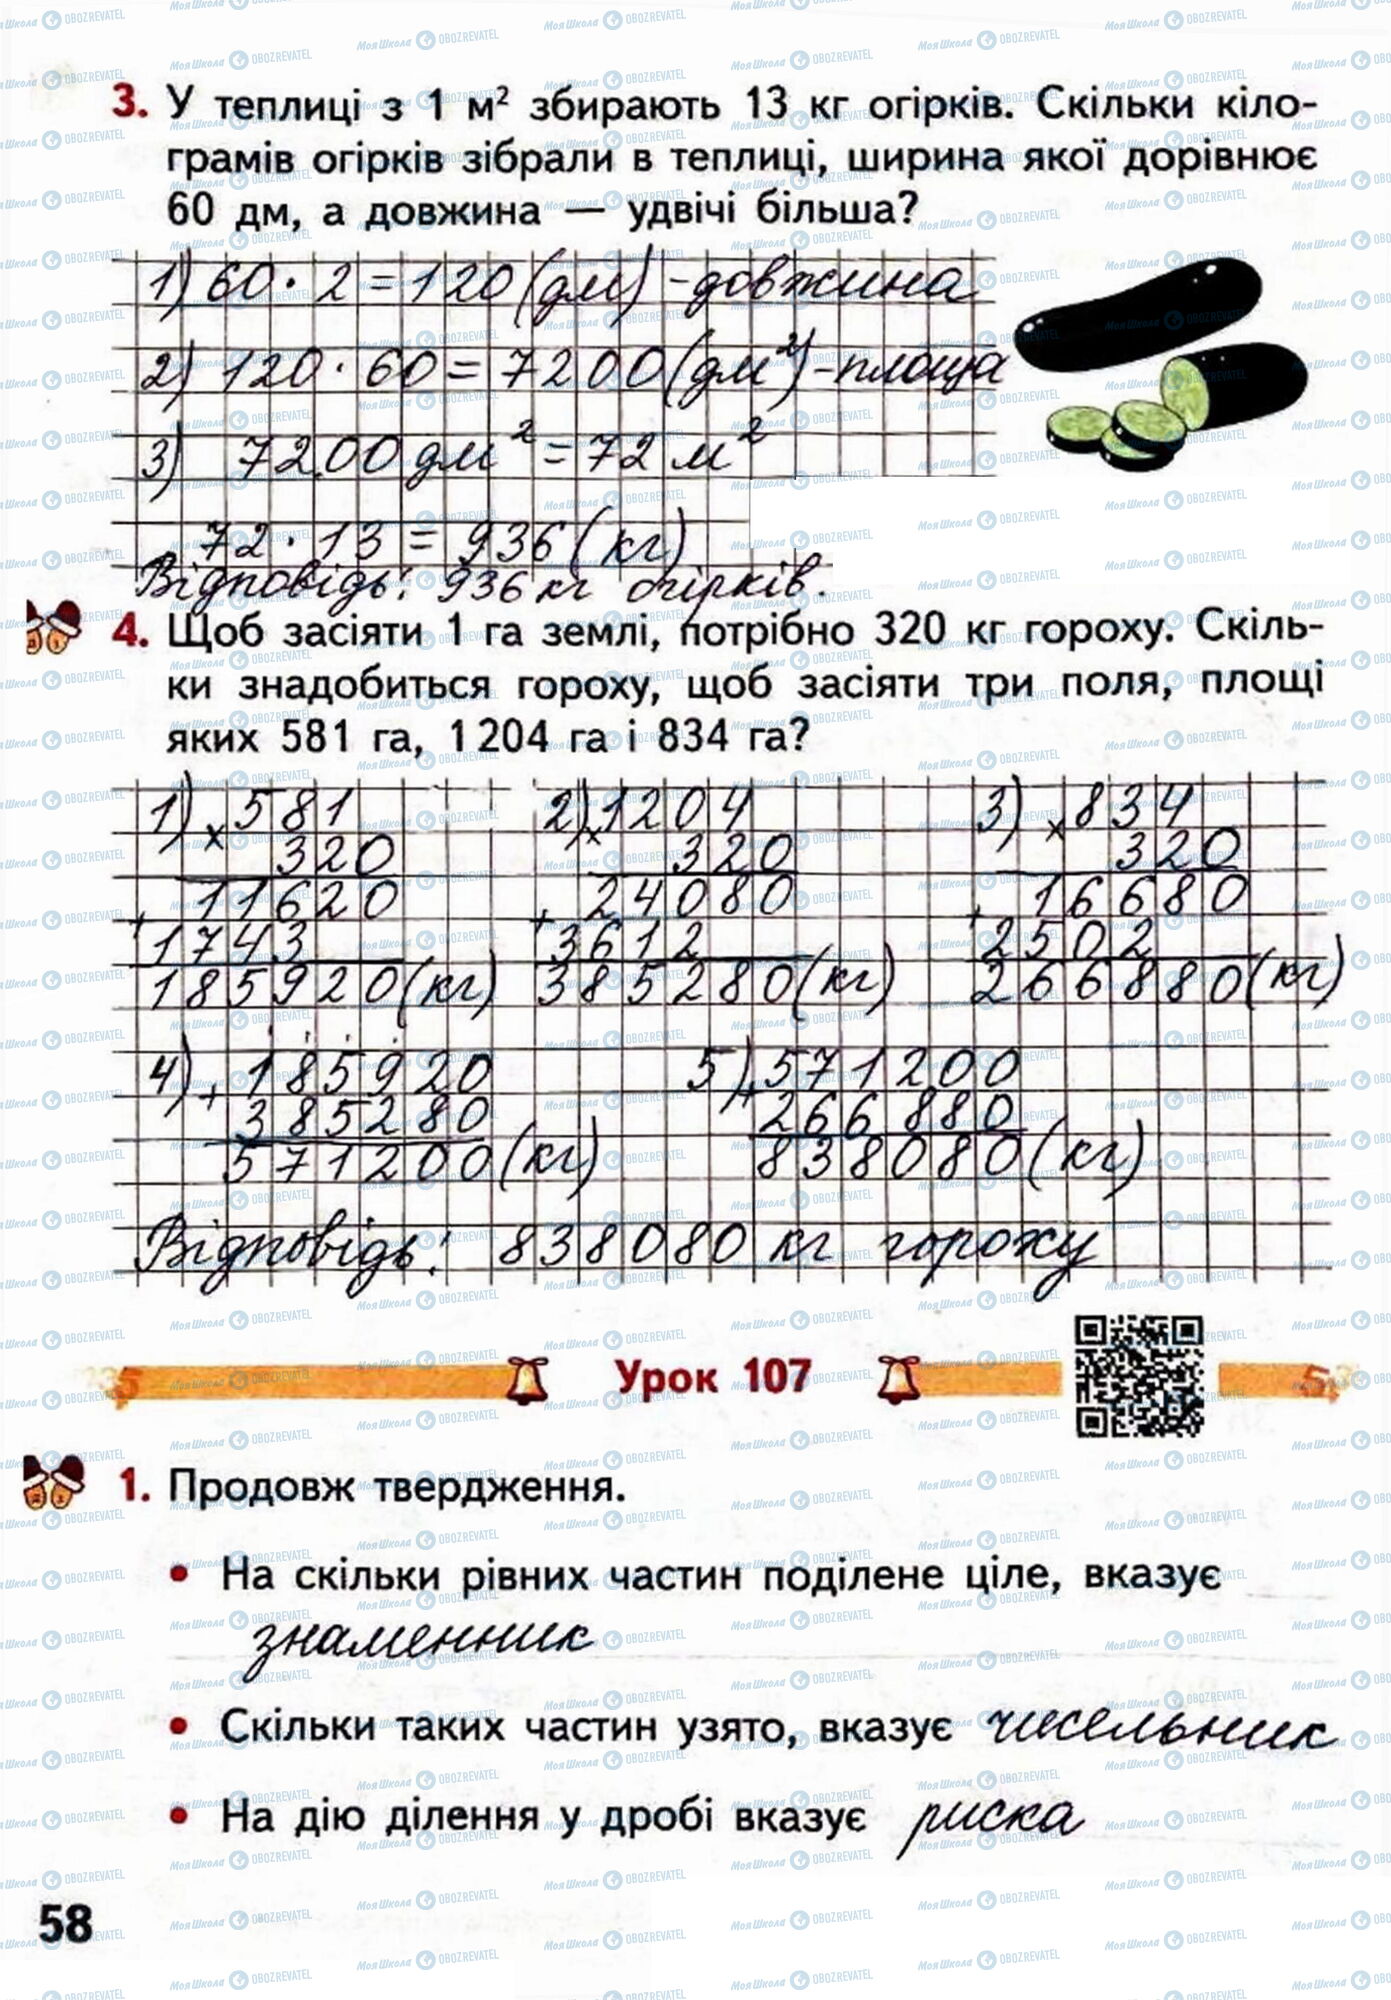 3. У теплиці з 1 м² збирають 13 кг огірків. Скільки кіло-
грамів огірків зібрали в теплиці, ширина якої дорівнює
60 дм, а довжина — удвічі більша?
1) 60 · 2 = 120 (дм) - довжина
2) 120 · 60 = 7200 (дм²) - площа
3) 7200 дм² = 72 м²
72 · 13 = 936 (кг)
Відповідь: 936 кг огірків.
4. Щоб засіяти 1 га землі, потрібно 320 кг гороху. Скіль-
ки знадобиться гороху, щоб засіяти три поля, площі
яких 581 га, 1 204 га і 834 га?
1) × 581 2) × 1204 3) × 834
320 320 320
+ 11620 + 24080 + 16680
1743 3612 2502
185920 (кг) 385280 (кг) 266880 (кг)
4) + 185920 5) + 571200
385280 266880
571200 (кг) 838080 (кг)
Відповідь: 838080 кг гороху
Урок 107
1. Продовж твердження.
• На скільки рівних частин поділене ціле, вказує
знаменник
• Скільки таких частин узято, вказує чисельник
• На дію ділення у дробі вказує риска
58
МояШкола OBOZREVATEL